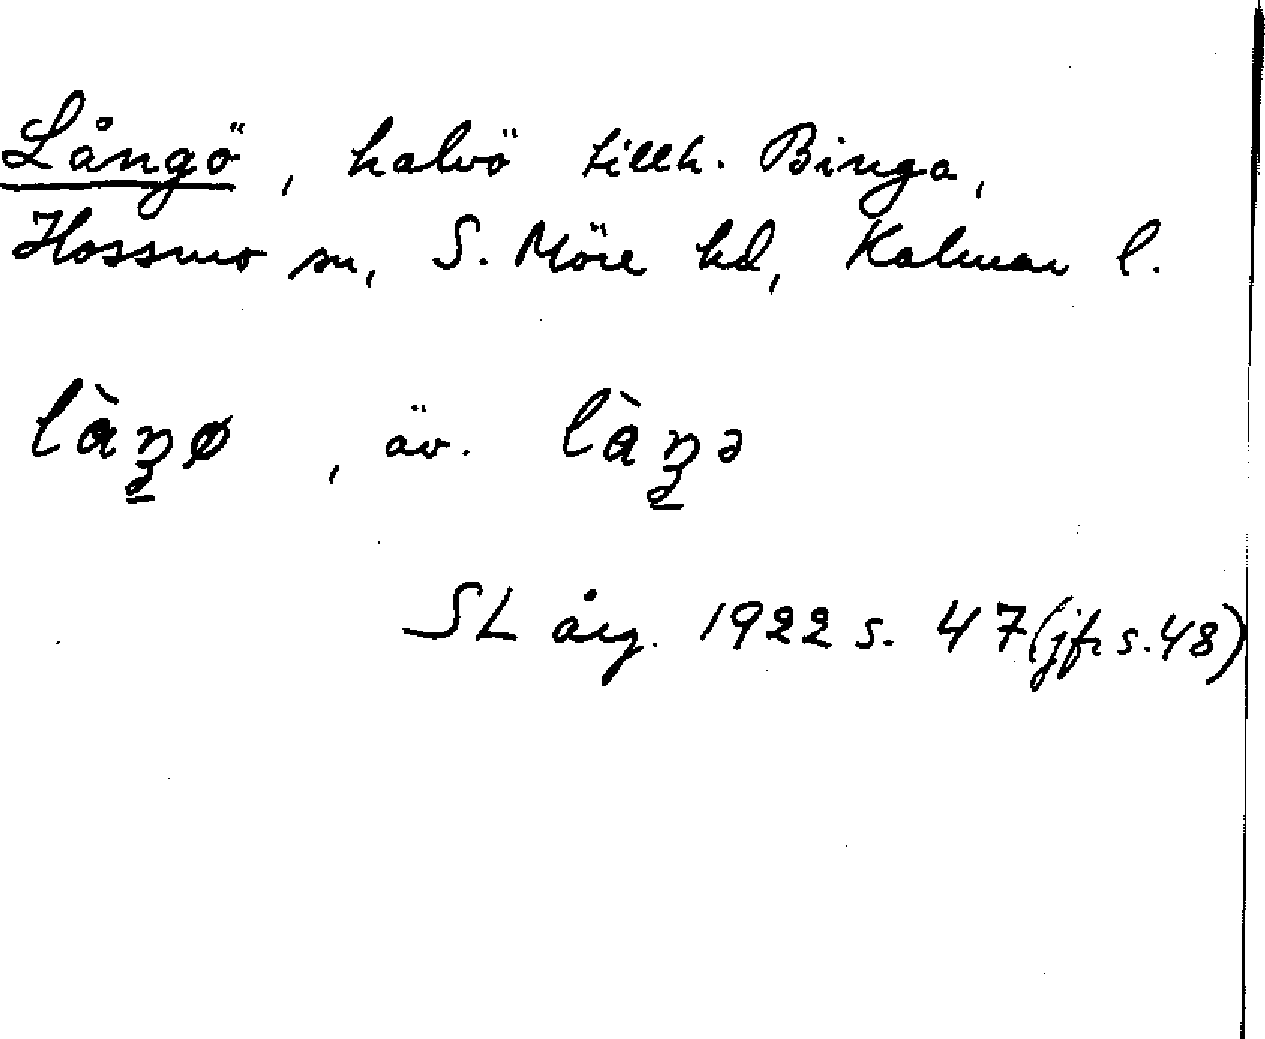 Långö, halvö tillh. Binga,
Hossmo sn, S. Möre hd, Kalmar l.
là𝑛̱ø, äv. là𝑛̱ə
SL årg. 1922 s. 47 (jfr s. 48)